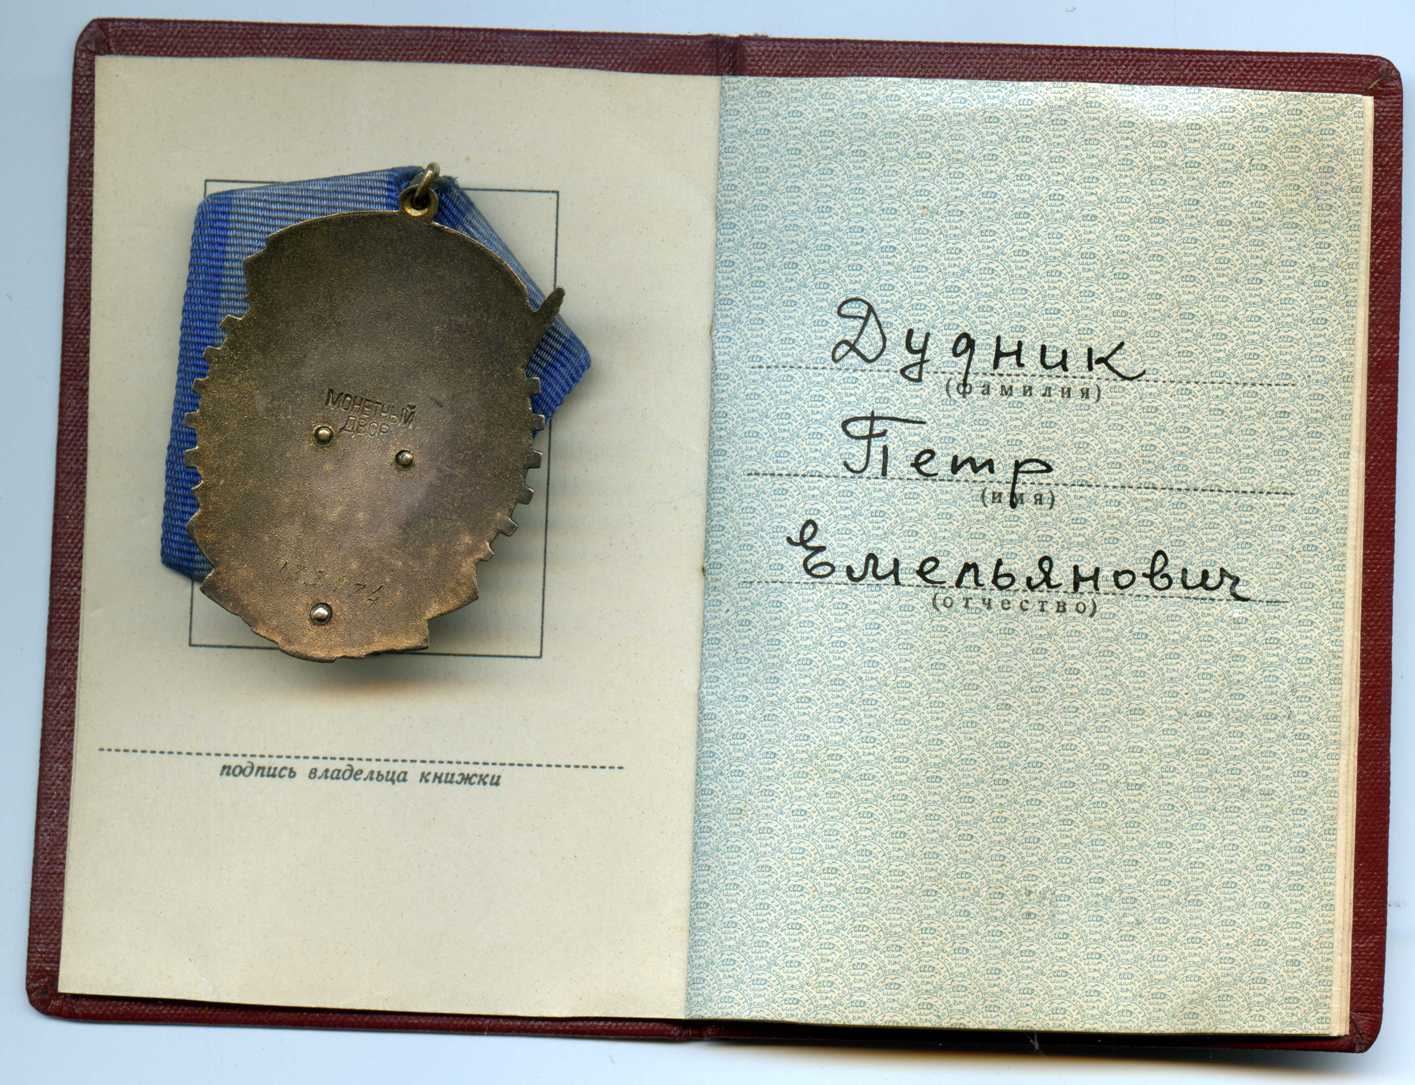 МОНЕТНЫЙ
ДВОР
подпись владельца книжки
Дудник
(фамилия)
Петр
(имя)
Емельянович
(отчество)